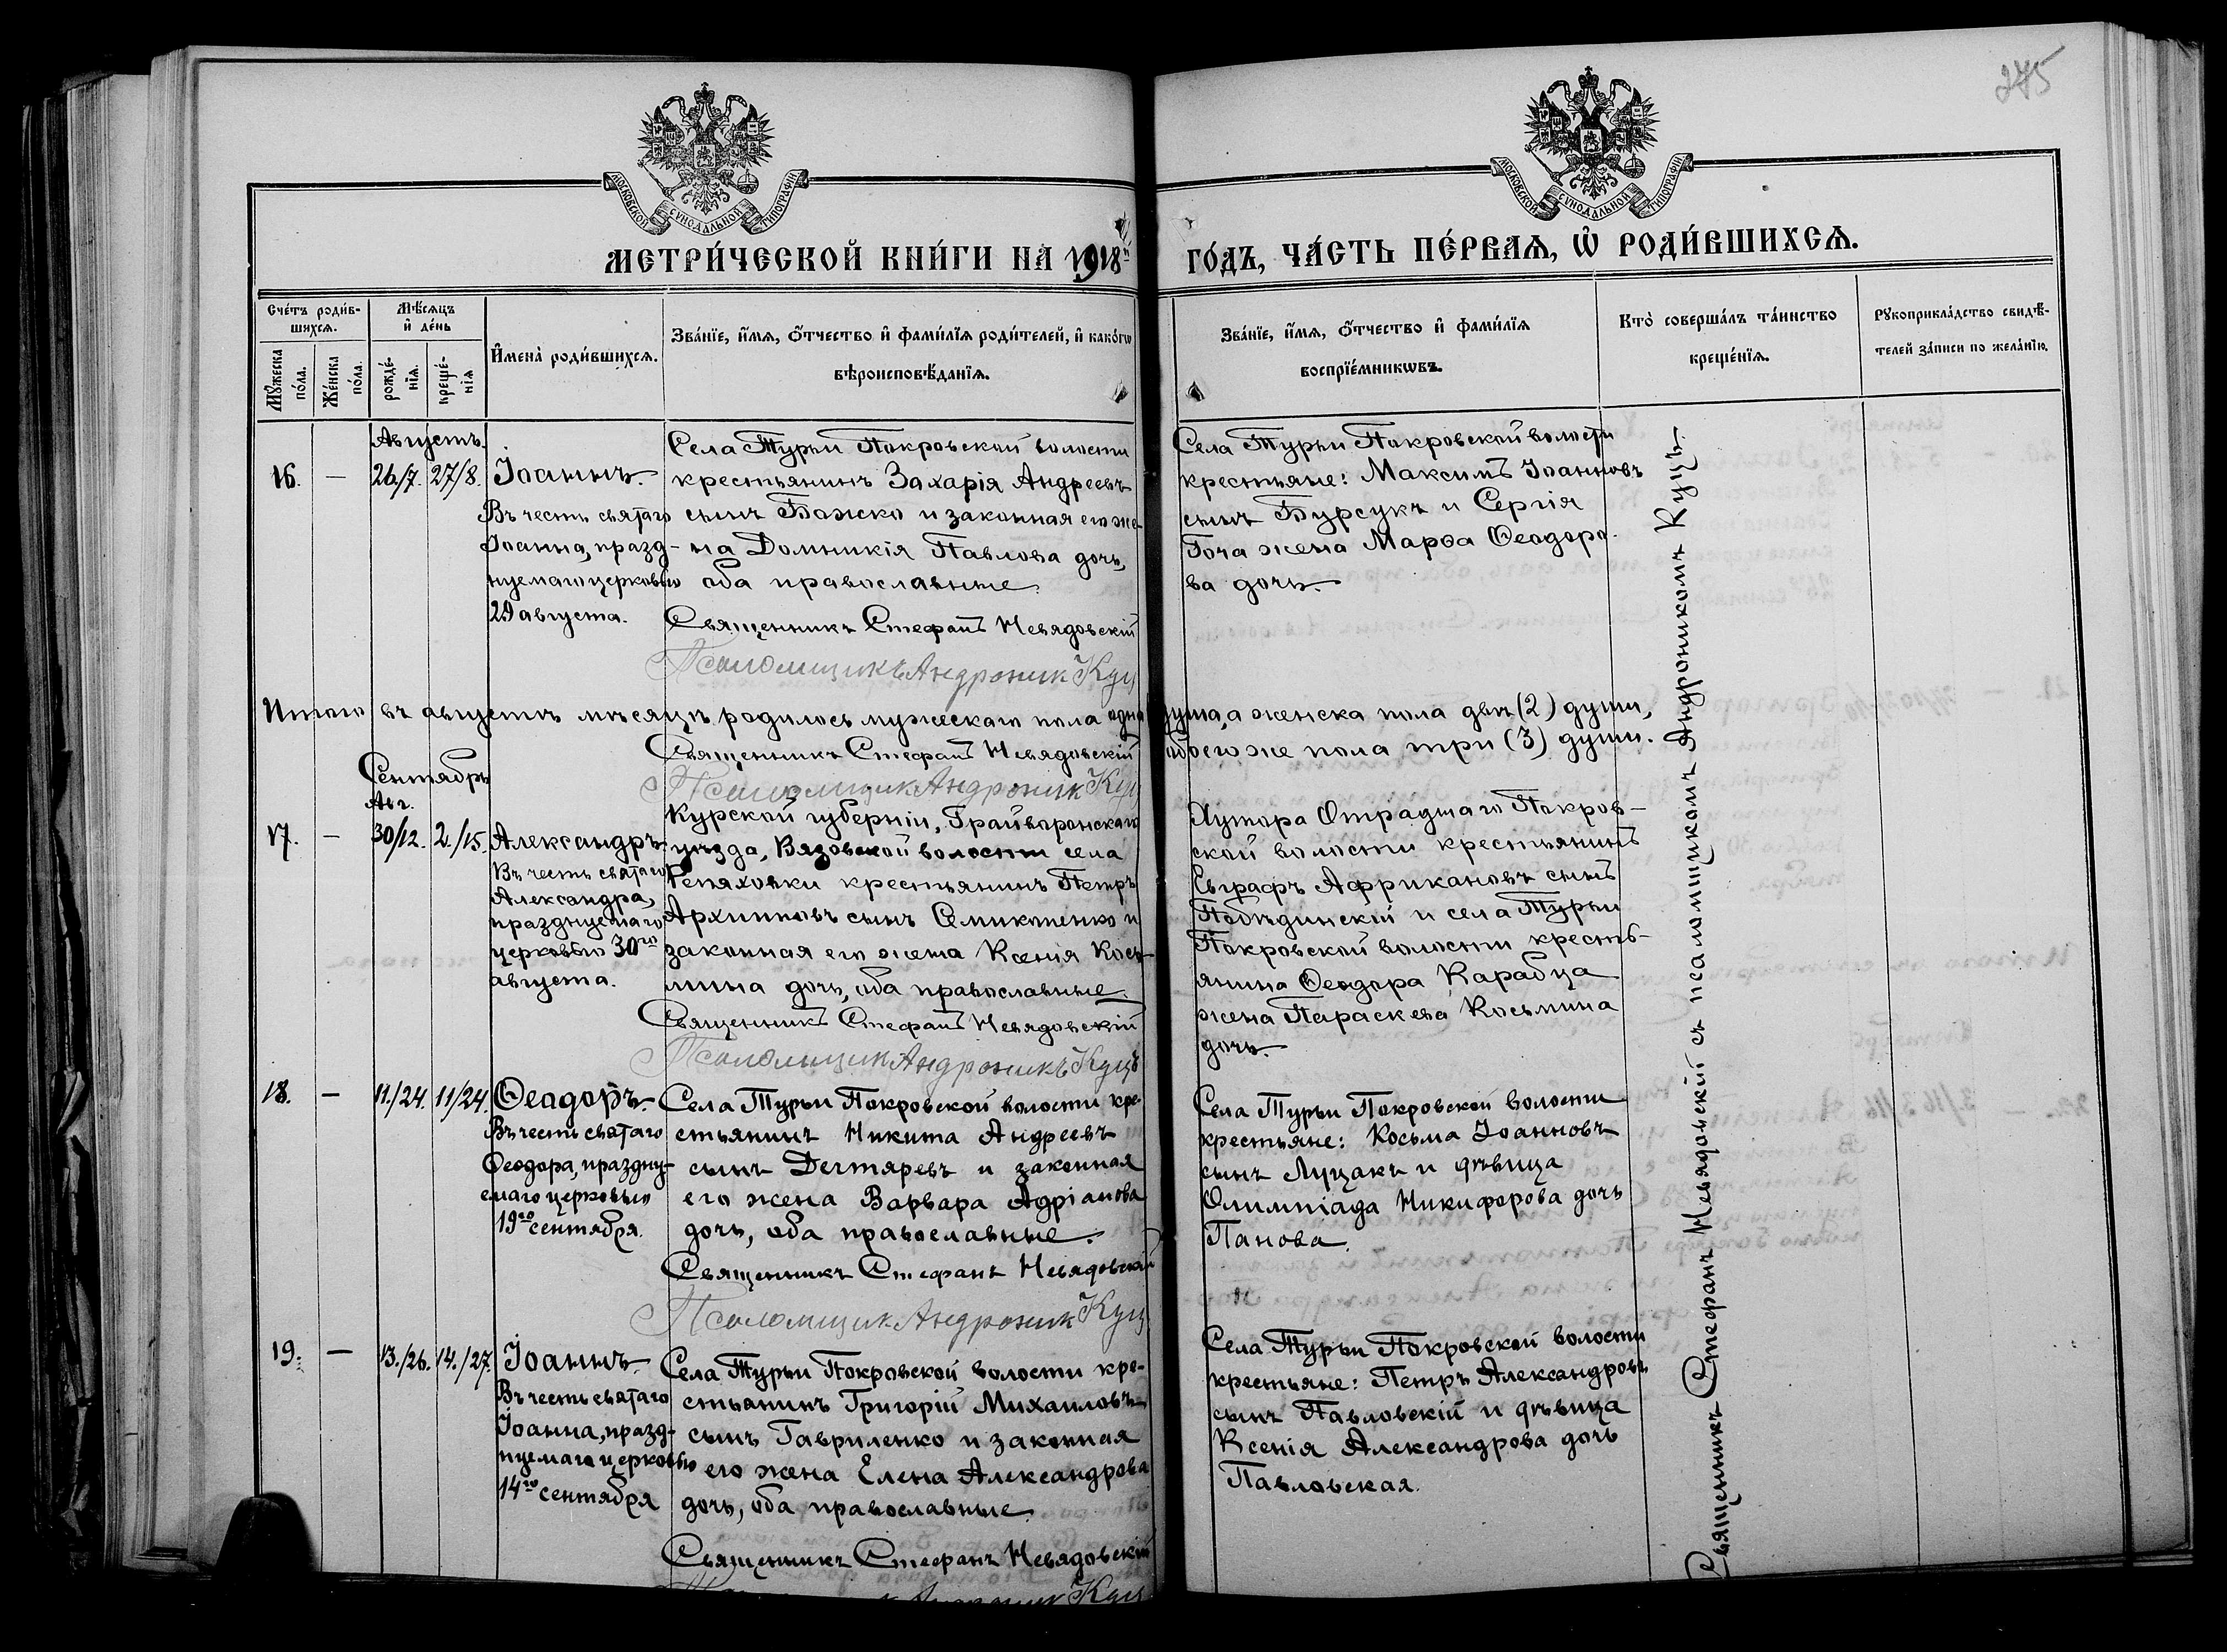 275
МОСКОВСКОЙ СѴНОДАЛЬНОЙ ТИПОГРАФІИ
МОСКОВСКОЙ СѴНОДАЛЬНОЙ ТИПОГРАФІИ
МЕТРИ́ЧЕСКОЙ КНИ́ГИ НА 1918й ГО́ДЪ, ЧА́СТЬ ПЕ́РВАЯ, Ѡ҆ РОДИ́ВШИХСЯ.
Сче́тъ роди́в-
шихся.
Мꙋ́жеска
по́ла.
Же́нска
по́ла.
Мѣ́сяцъ
и҆ де́нь
рожде́-
нїя.
креще́-
нїя
И҆мена̀ роди́вшихся.
Зва́нїе, и҆́мя, ѻ҆́тчество и҆ фами́лїя роди́телей, и҆ како́гѡ
вѣроисповѣ́данїя.
Зва́нїе, и҆́мя, ѻ҆́тчество и҆ фами́лїя
воспрїе́мникѡвъ.
Кто̀ соверша́лъ та́инство
креще́нїя.
Рꙋкоприкла́дство свидѣ́-
телей за́писи по жела́нїю.
Августъ.
16. — 26/7. 27/8.
Іоаннъ.
Въ честь святаго
Іоанна, празд-
нуемаго церковью
29 августа.
Села Турьи Покровской волости
крестьянинъ Захарія Андреевъ
сынъ Божко и законная его же-
на Домникія Павлова дочь,
оба православные.
Священникъ Стефанъ Невядовскій
Псаломщикъ Андроник Куц
Села Турьи Покровской волости
крестьяне: Максимъ Іоанновъ
сынъ Бурсукъ и Сергія
Гоча жена Марѳа Ѳеодоро-
ва дочь.
Итого въ августѣ мѣсяцѣ родилось мужескаго пола одна душа, а женска пола двѣ (2) души,
обоего же пола три (3) души.
Священникъ Стефанъ Невядовскій
Псаломщик Андроник Куц
Сентябрь
Авг.
17. — 30/12. 2./15.
Александръ.
Въ честь святаго
Александра,
празднуемаго
церковью 30го
августа.
Курской губерніи, Грайворонскаго
уѣзда, Вязовской волости села
Репяховки крестьянинъ Петръ
Архиповъ сынъ Семикопенко и
законная его жена Ксенія Кось-
мина дочь, оба православные.
Священникъ Стефанъ Невядовскій
Псаломщик Андроникъ Куцъ
Хутора Отраднаго Покров-
ской волости крестьянинъ
Евграфъ Африкановъ сынъ
Побѣдинскій и села Турьи
Покровской волости кресть-
янина Ѳеодора Карабца
жена Параскева Косьмина
дочь.
18. — 11./24. 11/24.
Ѳеодоръ.
Въ честь святаго
Ѳеодора, праздну-
емаго церковью
19го сентября.
Села Турьи Покровской волости кре-
стьянинъ Никита Андреевъ
сынъ Дегтяревъ и законная
его жена Варвара Адріанова
дочь, оба православные.
Священникъ Стефанъ Невядовскій
Псаломщик Андроник Куц
Села Турьи Покровской волости
крестьяне: Косьма Іоанновъ
сынъ Луцакъ и дѣвица
Олимпіада Никифорова дочь
Панова.
19. — 13./26. 14./27.
Іоаннъ.
Въ честь святаго
Іоанна, празд-
нуемаго церковью
14го сентября
Села Турьи Покровской волости кре-
стьянинъ Григорій Михаиловъ
сынъ Гавриленко и законная
его жена Елена Александрова
дочь, оба православные.
Священникъ Стефанъ Невядовскій
Куц
Села Турьи Покровской волости
крестьяне: Петръ Александровъ
сынъ Павловскій и дѣвица
Ксенія Александрова дочь
Павловская.
Священникъ Стефанъ Невядовскій съ псаломщикомъ Андроникомъ Куцъ.